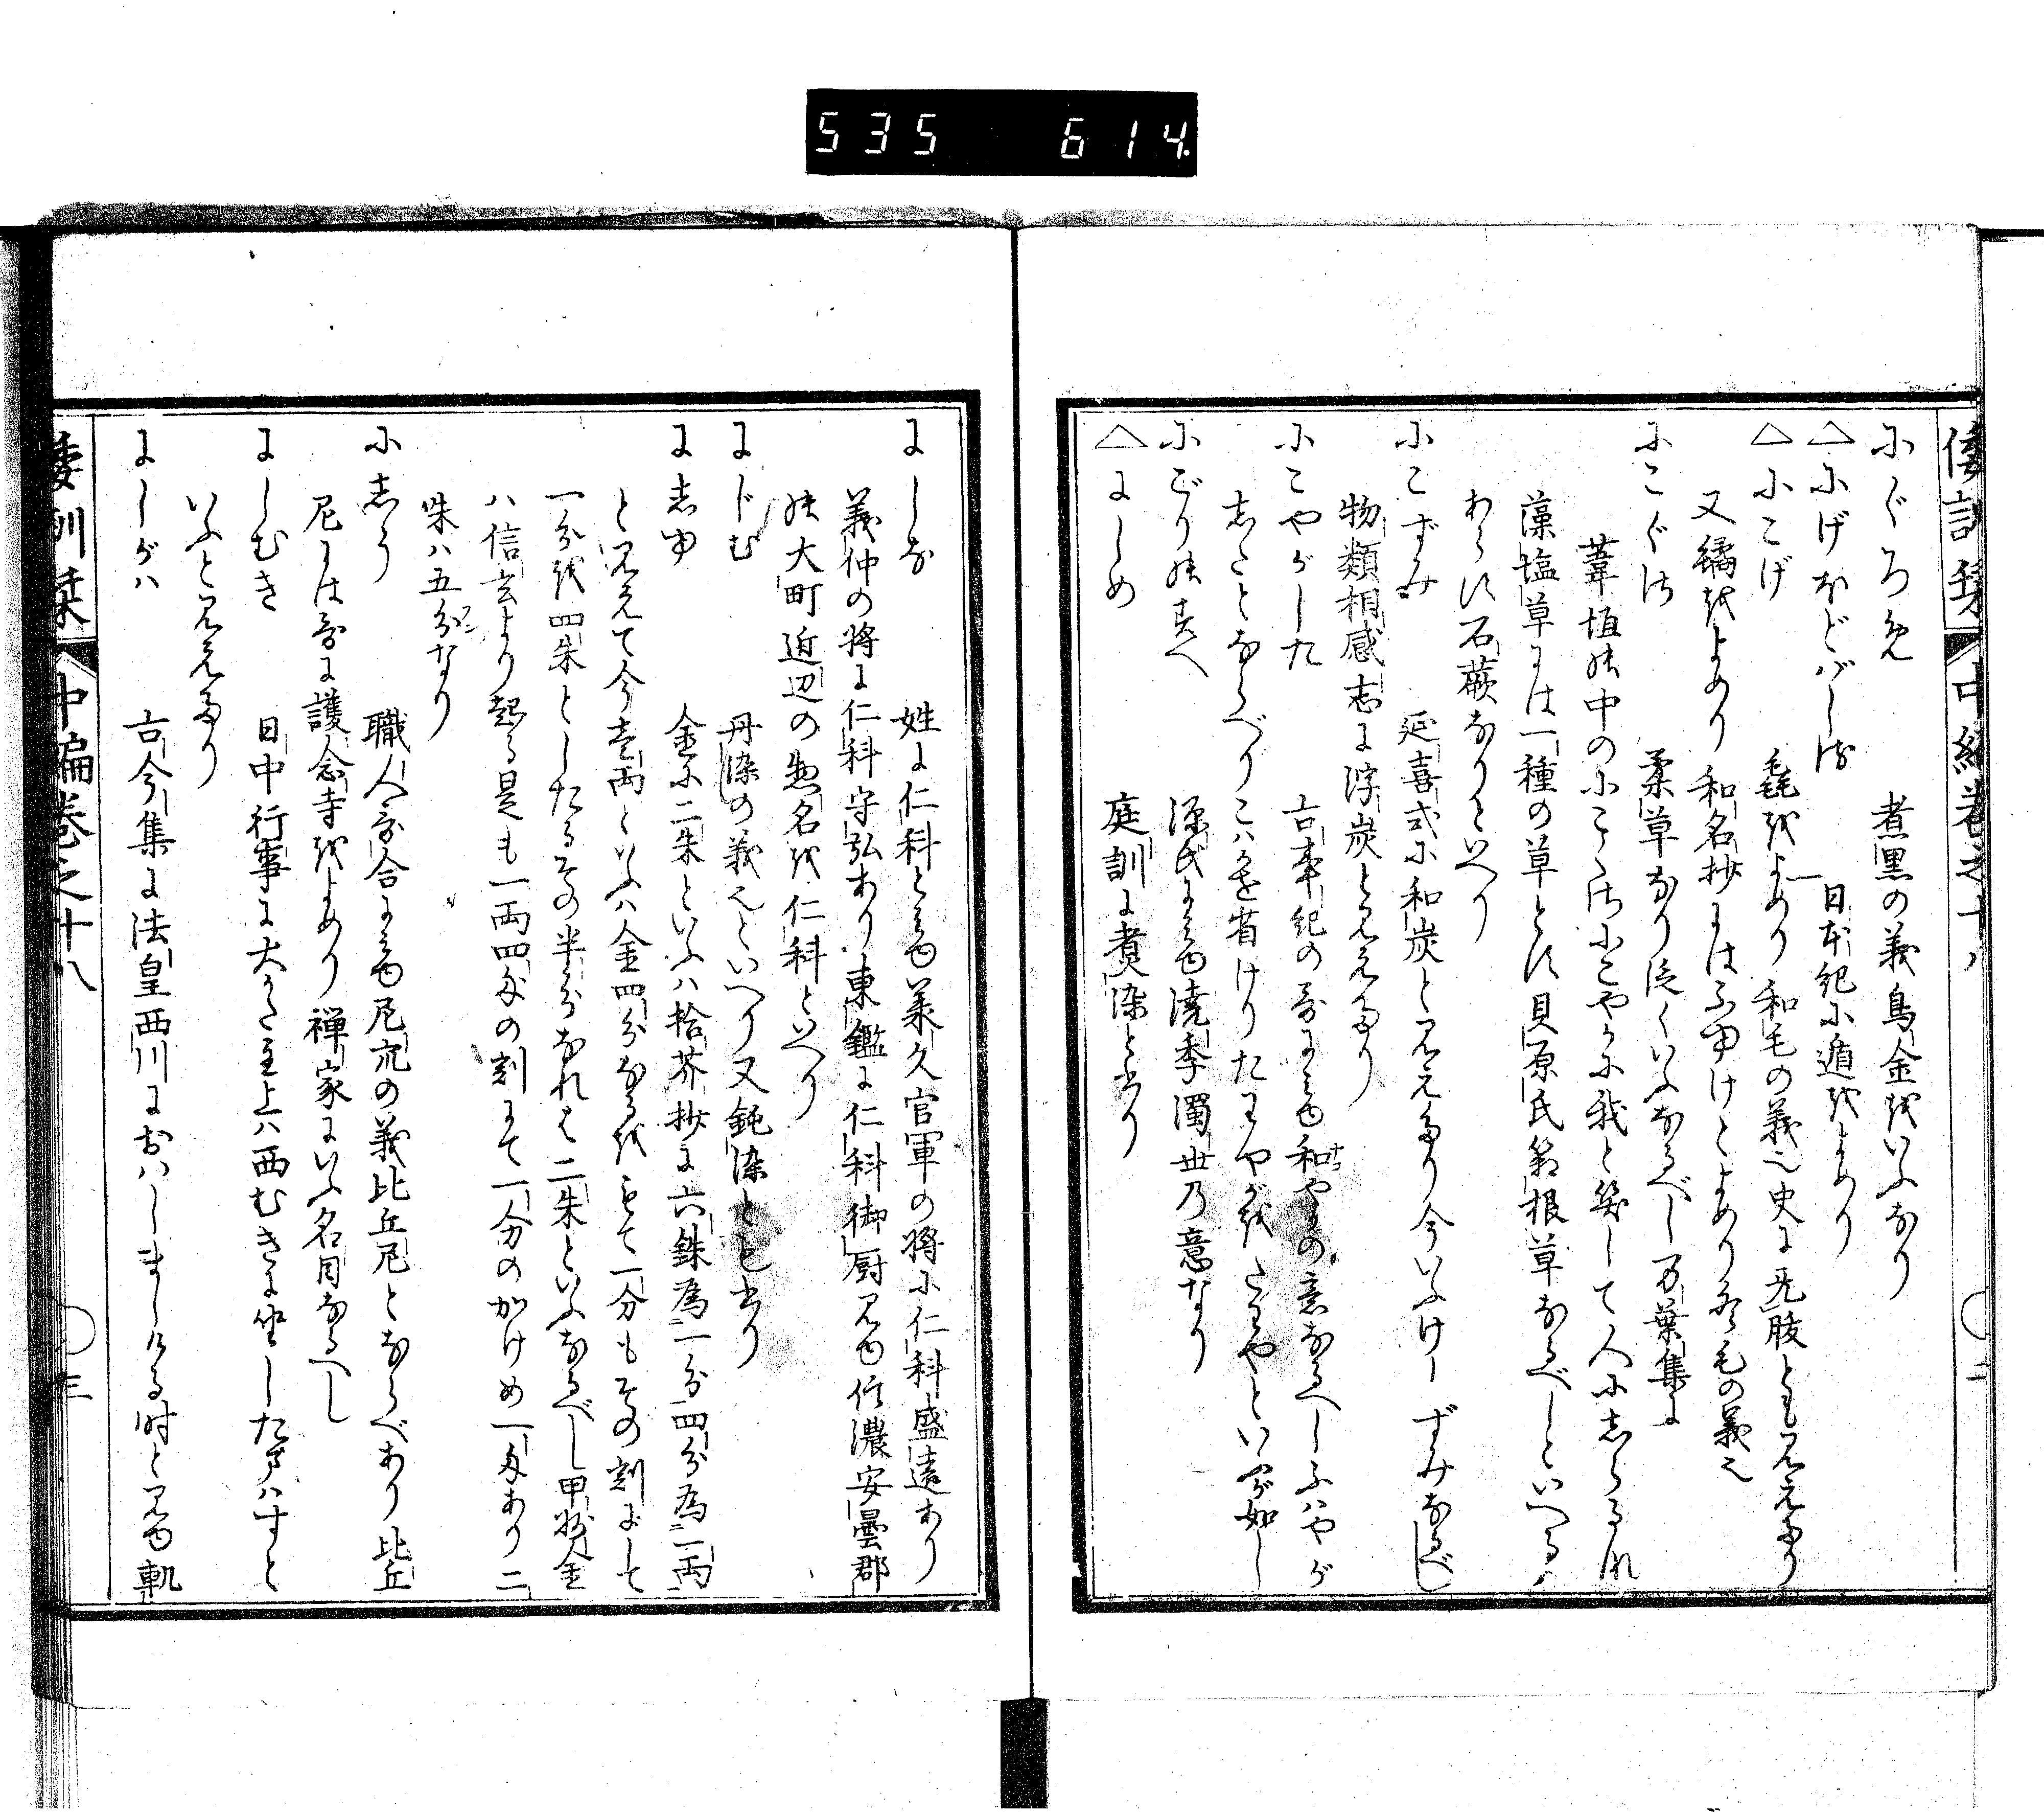 535 614
倭訓栞 中編巻之十八 二
にぐろめ 煮黒の義烏金をいふなり
△にげほどばしる 日本紀に遁をよめり
△にこげ 毳をよめり和毛の義也史に毛肢とも見えたり
又繘をよめり和名抄にはふゆけとよめり冬毛の義也
にこぐさ 柔草なり泛くいふなるべし万葉集に
葦垣の中のにこ草にこやかに我と笑して人にしらるな
藻塩草には一種の草とす貝原氏箱根草なるべしといへるハ
あらす石蕨なりといへり
にこずみ 延喜式に和炭と見えたり今いふけしずみなるべし
物類相感志に浮炭と見えたり
にこやがした 古事記の哥にみゆ和やかの意なるべしふハやが
したとならべりこハかを省けりたわやがをたわやといふが如し
にごりのすへ 源氏にみゆ澆季濁世乃意なり
△にしめ 庭訓に煮染と書り
にしな 姓に仁科とみゆ義久官軍の将に仁科盛遠あり
義仲の将に仁科守弘あり東鑑に仁科御厨見ゆ信濃安曇郡
の大町近辺の惣名を仁科といへり
にじむ 丹染の義也といへり又鈍染とも書り
にしゆ 金に二朱といふハ拾芥抄に六銖為一分四分為一両
と見えて今壱両といふハ金四分なるをもて一分もその割にして
一分を四朱としたるその半分なれは二朱といふなるべし甲州金
ハ信玄より起る是も一両四分の割にて一分の加けめ一匁あり二
朱ハ五分なり
にしう 職人哥合にみゆ尼衆の義比丘尼とならべあり比丘
尼には哥に護念寺をよめり禅家にいふ名目なるへし
にしむき 日中行事に大かた主上ハ西むきに坐したまハすと
いふと見えたり
にしがハ 古今集に法皇西川におハしましける時と見ゆ軌
倭訓栞 中編巻之十八 三